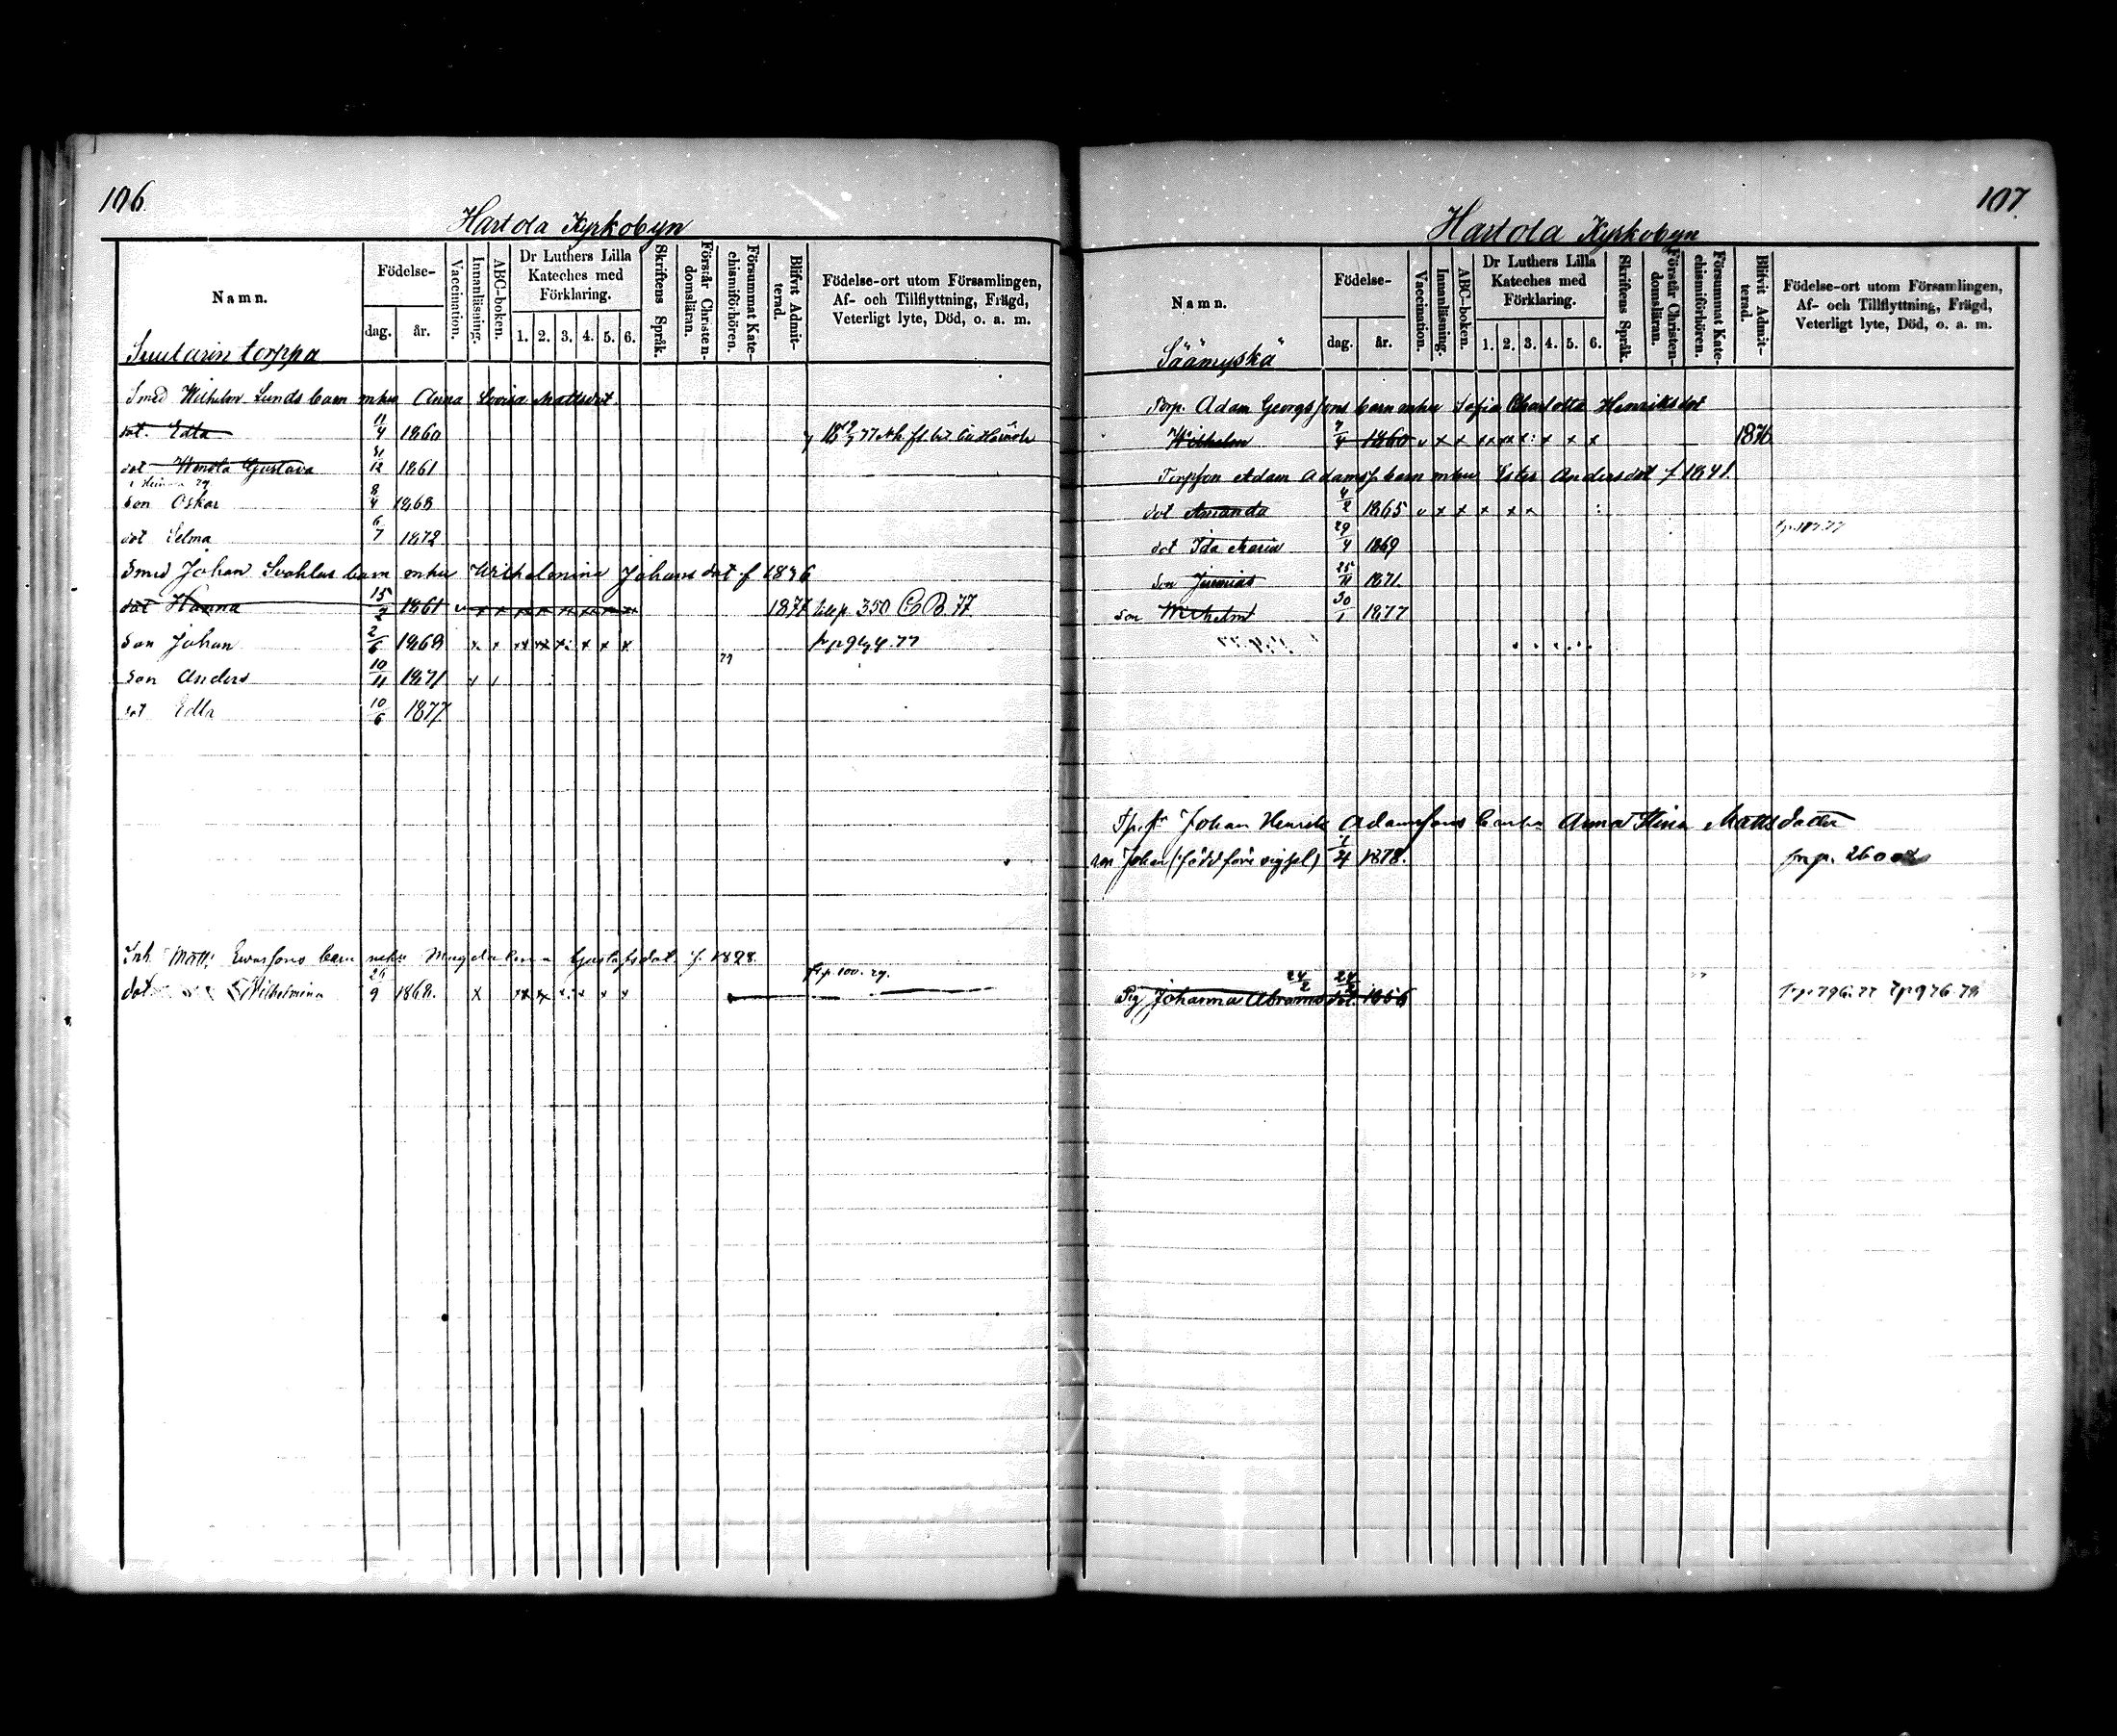 106.
Hartola Kyrkobyn
Namn.
Födelse-
dag.
år.
Vaccination.
Innanläsning.
ABC-boken.
Dr Luthers Lilla
Kateches med
Förklaring.
1. 2. 3. 4. 5. 6.
Skriftens Språk.
Förstår Christen-
domsläran.
Försummat Kate-
chismiförhören.
Blifvit Admit-
terad.
Födelse-ort utom Församlingen,
Af- och Tillflyttning, Frägd,
Veterligt lyte, Död, o. a. m.
torppa
Smed Wilhelm Lunds barn mhu Anna Lovisa Mattsdot.
dot. Edla 11/4 1860
dot Gustava 31/12 1861
son Oskar 8/4 1868
dot Selma 6/7 1872
Smed Johan barn mhu Wilhelmina Johansdot f 1836
dot Hanna 15/2 1861 v x x x x x x x x 1877 350 77
son Johan 2/6 1868 x x xx xx x: x x x
79
son Anders 10/11 1871
dot Edla 10/6 1877
Inh. Matts barn mhu Magdalena Gustafsdot. f. 1828.
frp. 100. 79.
dot Wilhelmina 26/9 1868. x xx x x: x x x
107.
Hartola Kyrkobyn
Namn.
Födelse-
dag.
år.
Vaccination.
Innanläsning.
ABC-boken.
Dr Luthers Lilla
Kateches med
Förklaring.
1. 2. 3. 4. 5. 6.
Skriftens Språk.
Förstår Christen-
domsläran.
Försummat Kate-
chismiförhören.
Blifvit Admit-
terad.
Födelse-ort utom Församlingen,
Af- och Tillflyttning, Frägd,
Veterligt lyte, Död, o. a. m.
"Säämyskä"
Torp. Adam Georgssons barn mhu Sofia Charlotta Henriksdot
Wilhelm 7/4 1860 v x x xx xx x: x x x 1876
Torpson Adam Adamss. barn mhu Ester Andersdot f 1841.
dot Amanda 4/2 1865 v x x x x x
dot Ida Maria 29/4 1869
son Jeremias 25/11 1871
son Wilhelm 30/1 1877
Johan Henrik Adamssons barn Anna Stina Mattsdotter
son Johan (född före vigsel) 1/4 1878. frp. 260
Pig Johanna Abramsdot. 24/2 24/2 1856 frp 796. 77 tp 976. 78